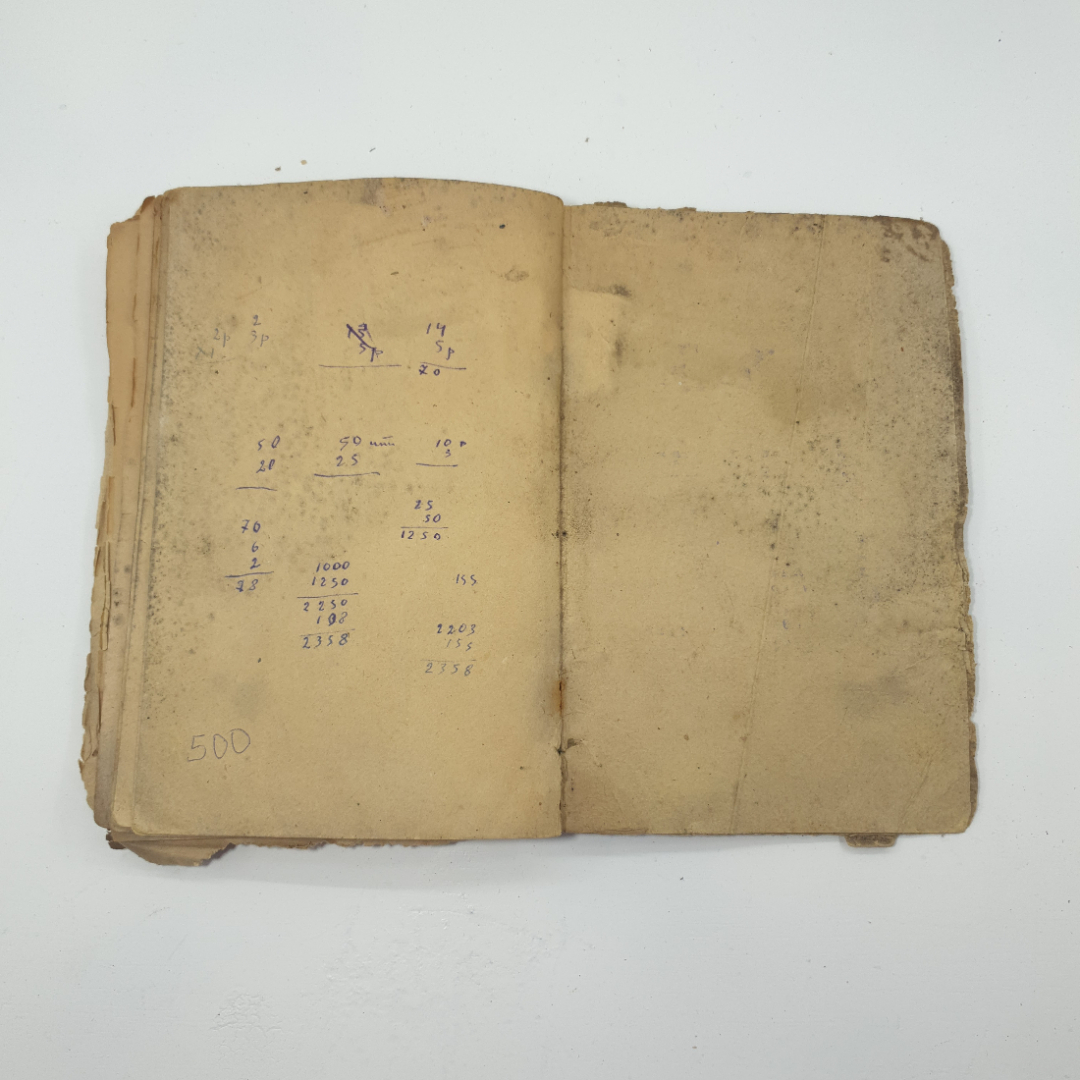 2
2р 5р
14
5р
70
50
20
50 шт
25
10 р
5
70
6
2
78
25
50
1250
1000
1250
2250
108
2358
155
2203
155
2358
500